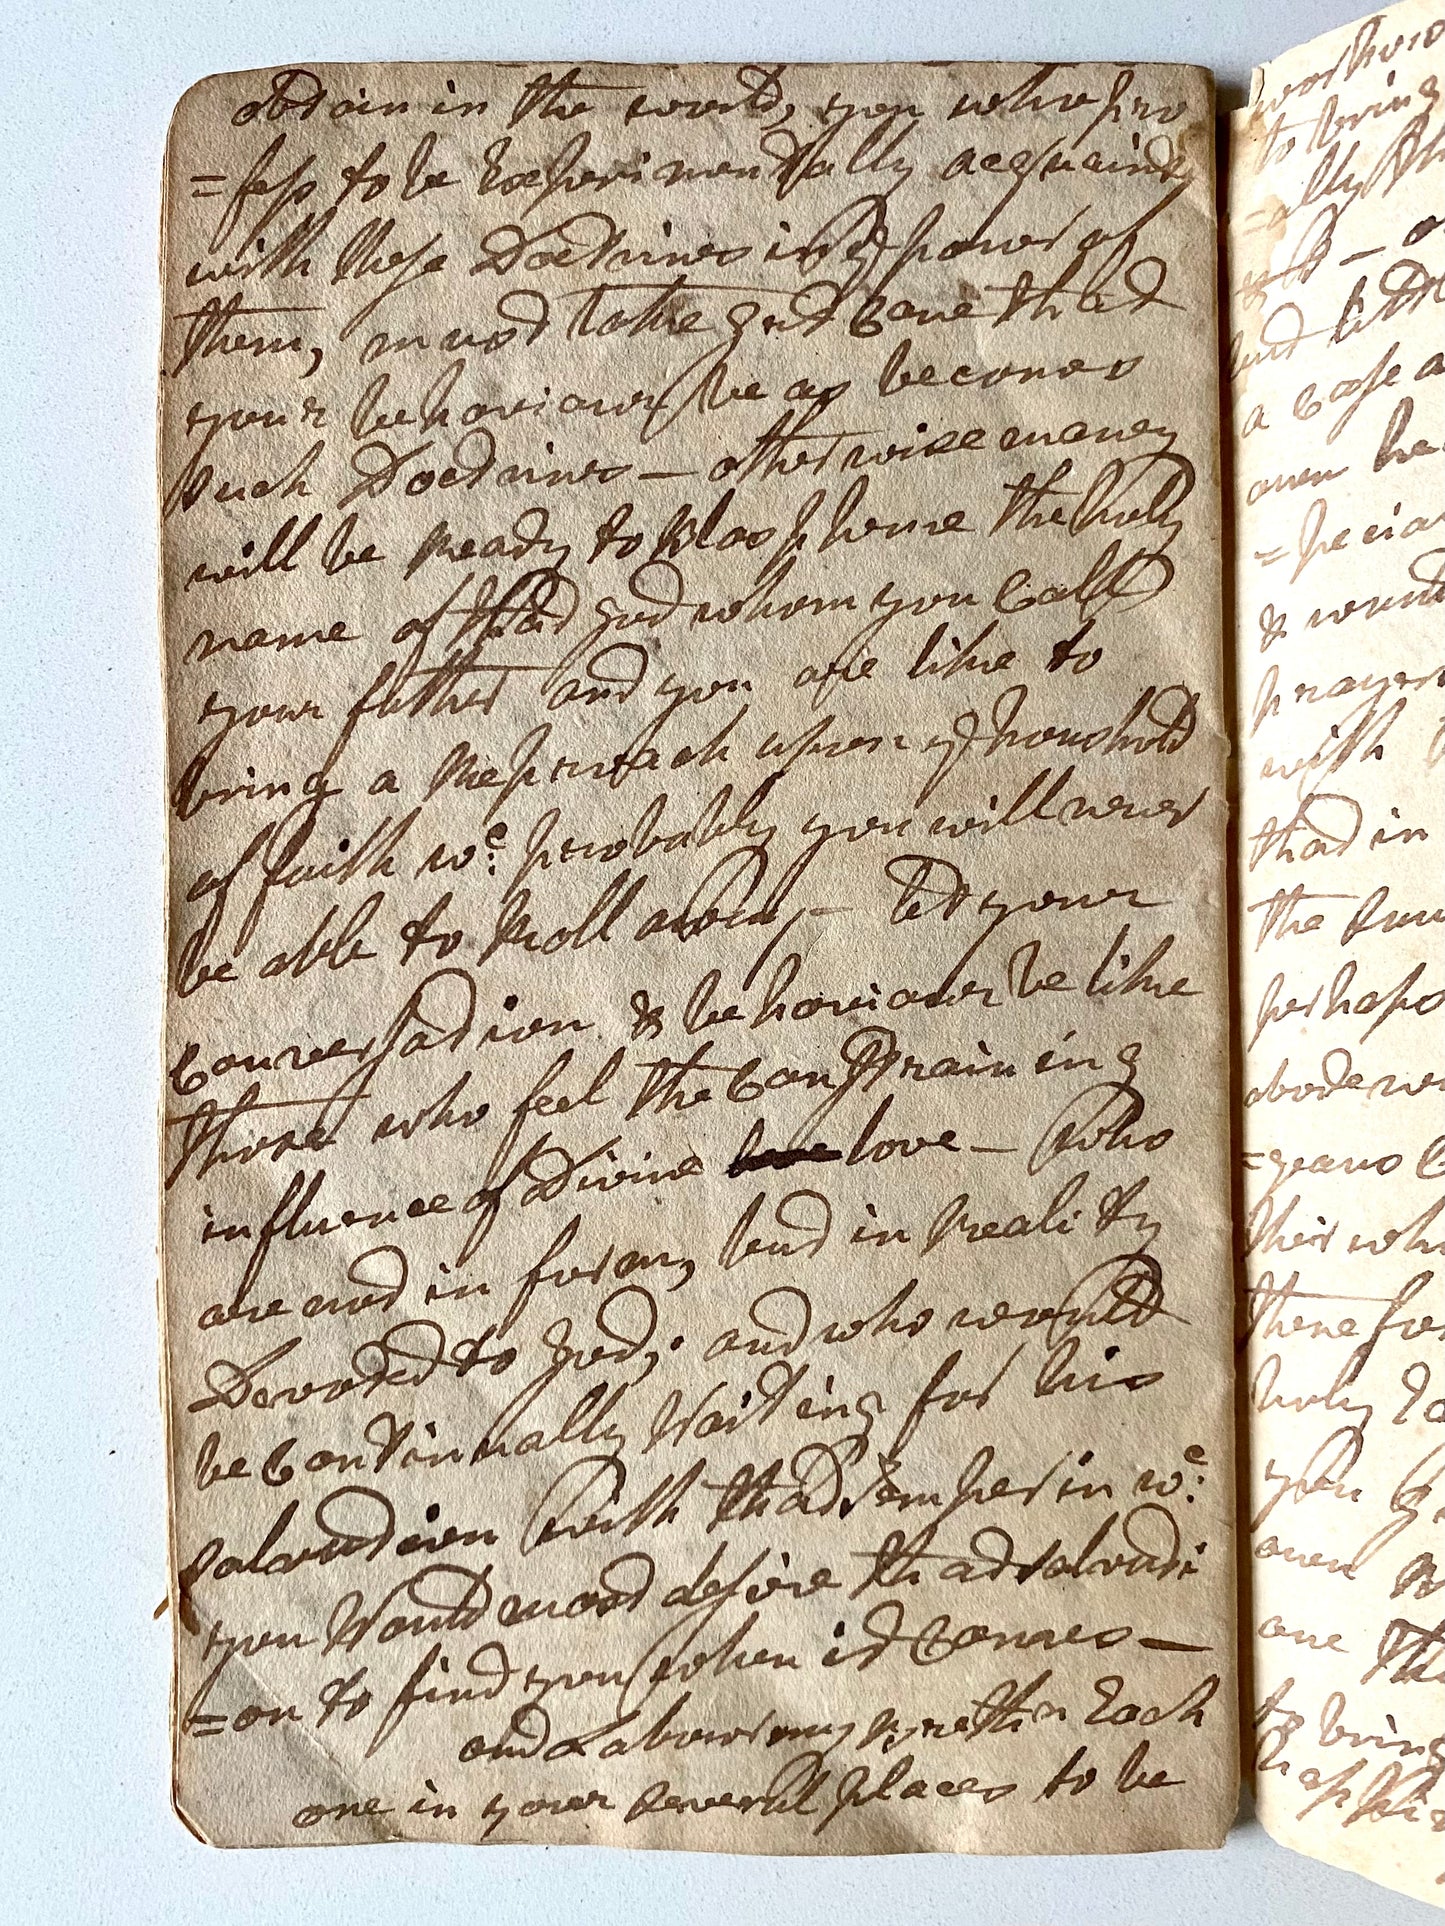 obtain in the world, you who pro
=fess to be Experimentally acquaintd
with these Doctrines in ye power of
them, must take grat Care that
your behaviour be as becomes
such Doctrines — otherwise maney
will be Ready to Blaspheme the holy
name of that god whom you Call
your father and you are like to
bring a Reproach upon ye houshold
of faith wc: probably you will never
be able to Roll away, — let your
Conversation & behaviour be like
those who feel the Constraining
influence of Divine love — who
are not in form, but in Reality
Devoted to god; and who would
be Continually Waiting for his
salvation with that Temper in wc:
you Would most desire that salvati
=on to find you when it Comes —
and Labour my Brethrn Each
one in your several places to be
to bring
=ally
a Case
even
& 
prayer
with
that in
the
perhaps
abode
=geans
their
therefor
holy
you
even
one
to bring